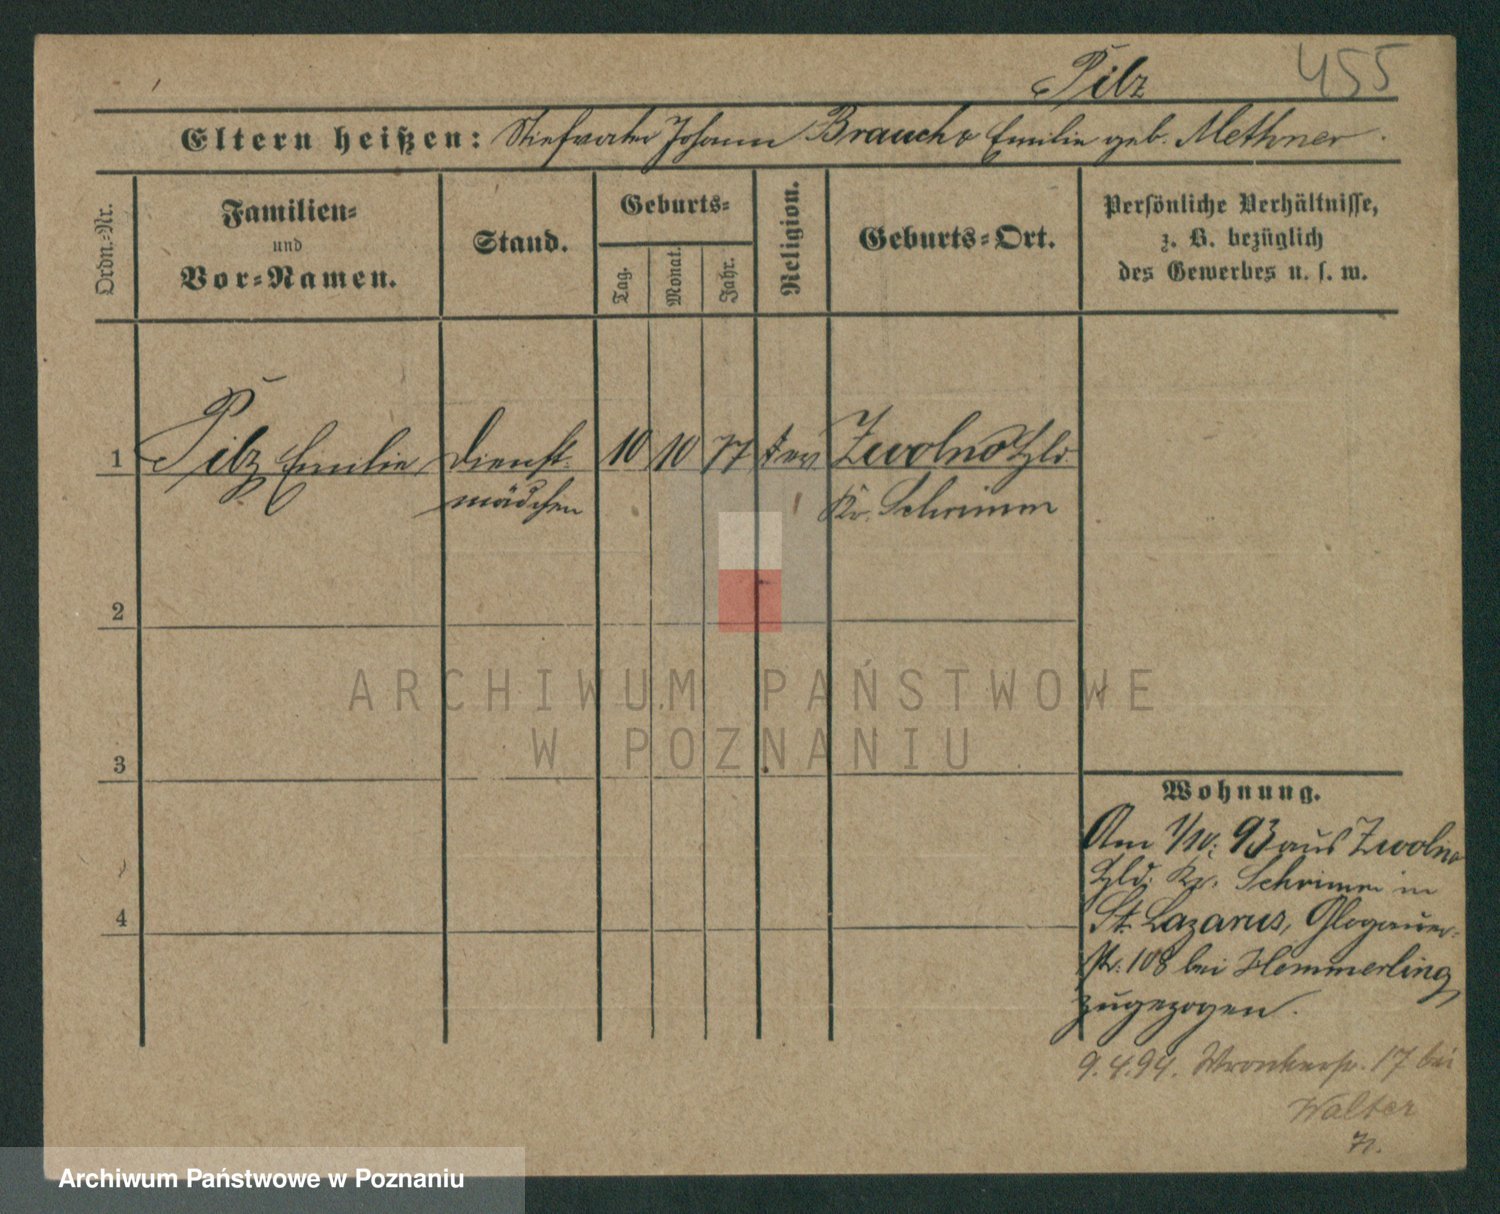 Pilz 455
Eltern heißen: Stiefvater Johann Emilie geb. Methner.
Ordn.-Nr.
Familien-
und
Vor-Namen.
Stand.
Geburts-
Tag.
Monat.
Jahr.
Religion.
Geburts-Ort.
Persönliche Verhältnisse,
z. B. bezüglich
des Gewerbes u. s. w.
1 Pilz Emilie Dienst- 10 10 77 ev Zwolno Hld.
mädchen Kr. Schrimm
2
3
4
ARCHIWUM PAŃSTWOWE
W POZNANIU
Wohnung.
Am 1/10. 93 aus Zwolno
Hld. Kr. Schrimm in
St. Lazarus, Glogauer-
str. 108 bei Hemmerling
zugezogen.
9.4.94. Wronkerstr. 17 bei
Walter
Archiwum Państwowe w Poznaniu